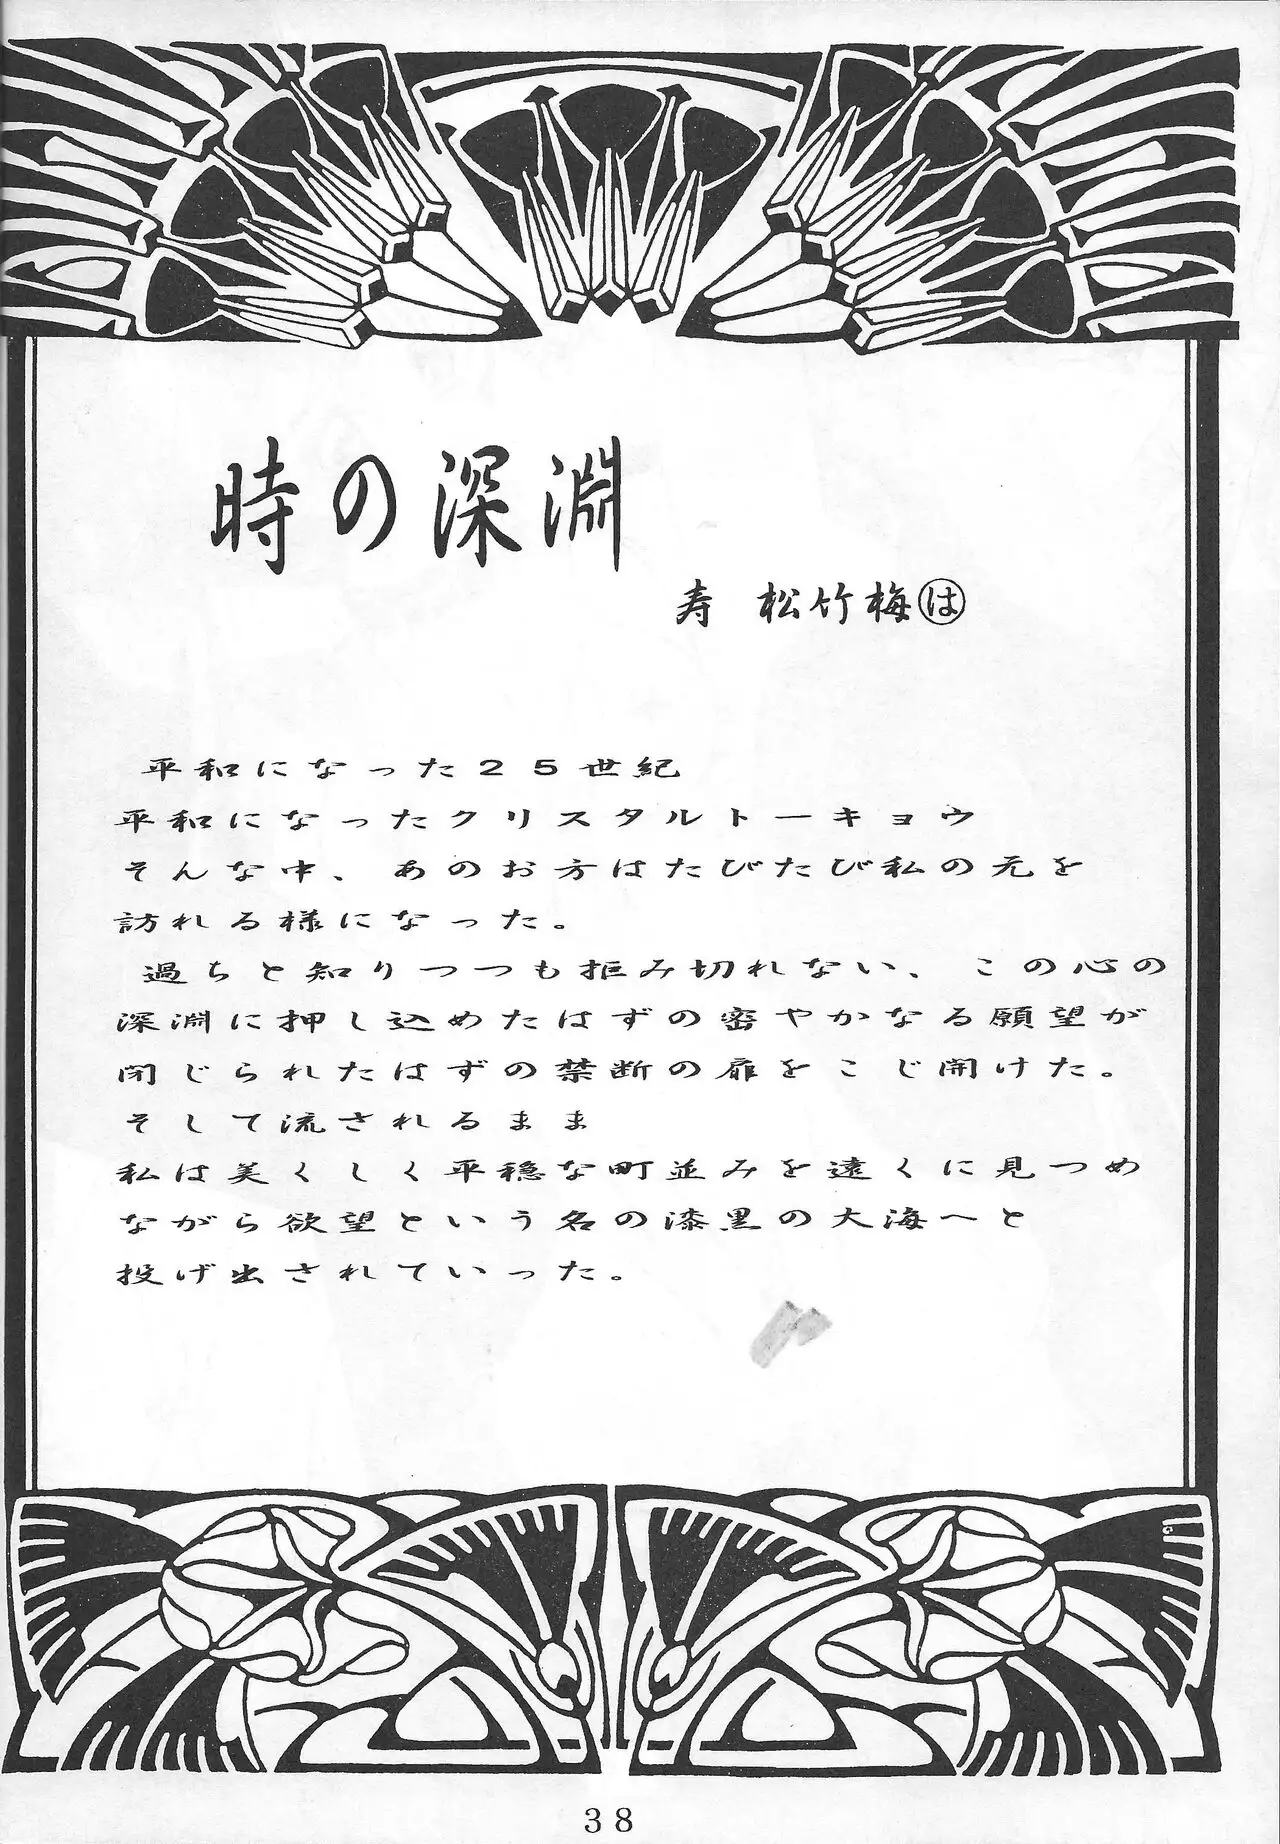 時の深淵
寿 松竹梅は
平和になった２５世紀
平和になったクリスタルトーキョウ
そんな中、あのお方はたびたび私の元を
訪れる様になった。
過ちと知りつつも拒み切れない、この心の
深淵に押し込めたはずの密やかなる願望が
閉じられたはずの禁断の扉をこじ開けた。
そして流されるまま
私は美くしく平穏な町並みを遠くに見つめ
ながら欲望という名の漆黒の大海へと
投げ出されていった。
38